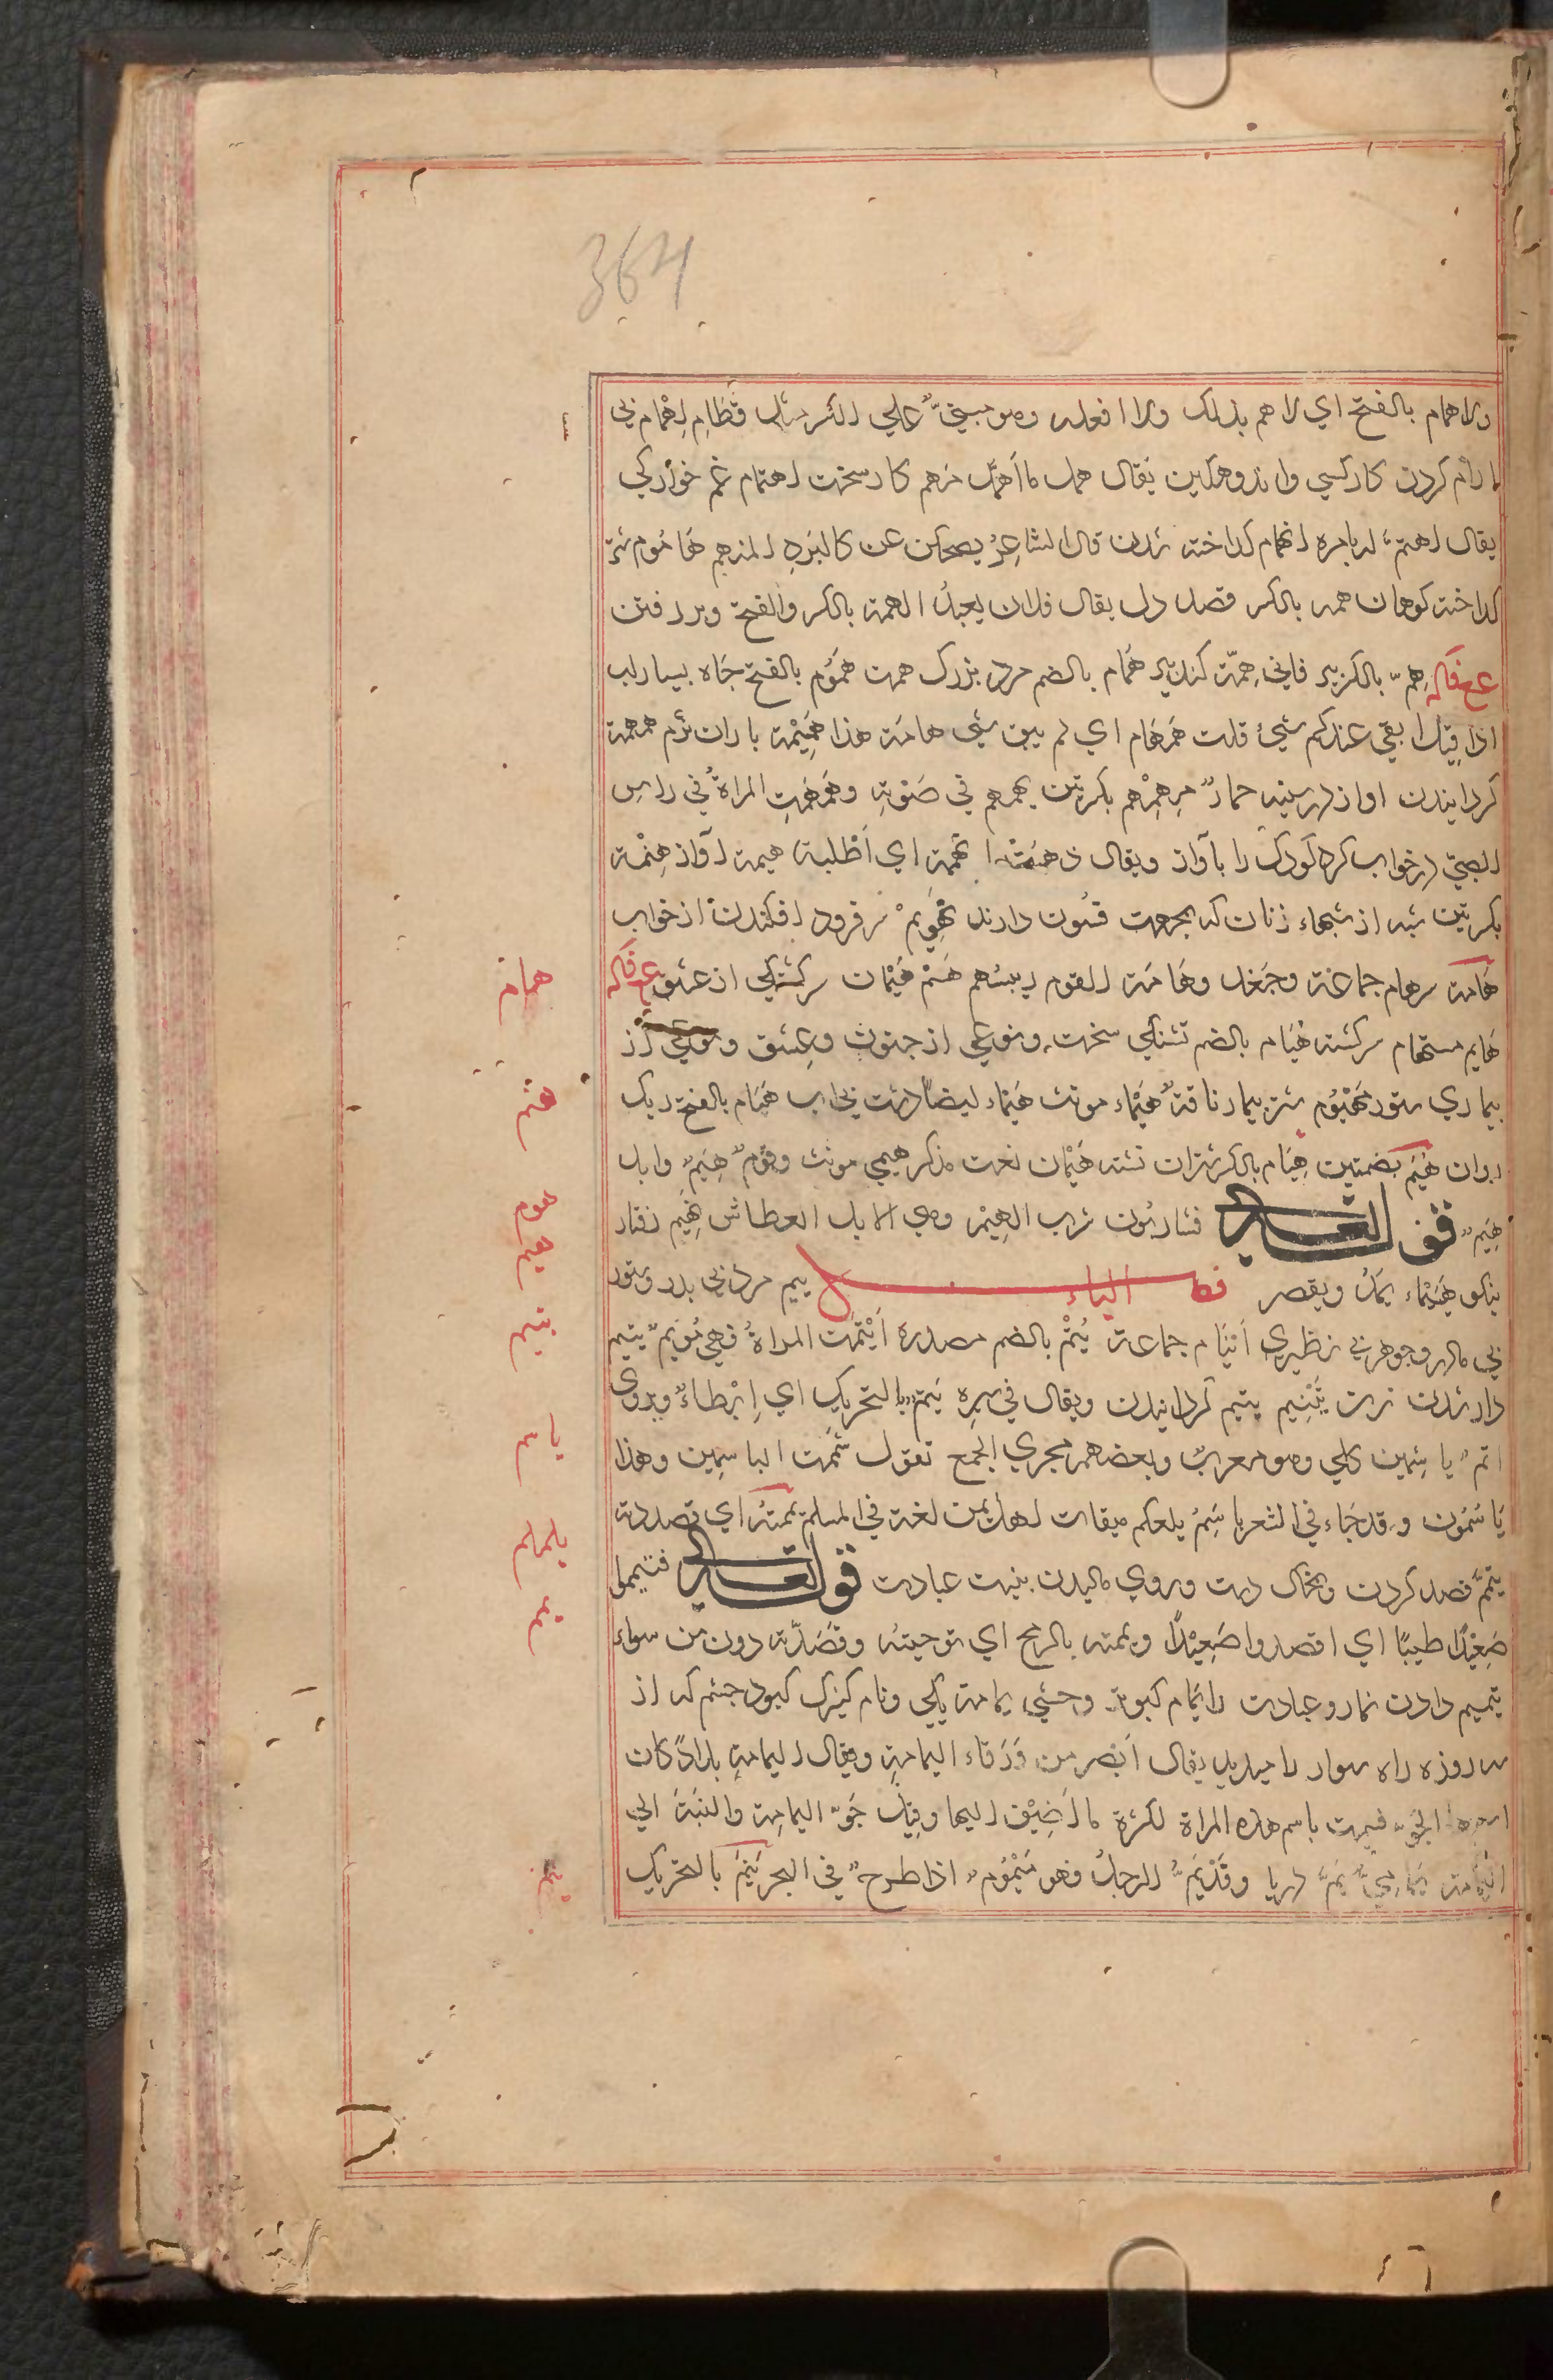 364
ولاهمام بالفتح اي لا اهم بذلك ولا افعله وهو مبني علي الكسر مثل قطام اهمام بي
ارام كردن كار كسي واندوهكين يقال همك ما اهمك مهم كار سخت اهتمام غم خواركي
يقال اهتم له بامره انهمام كداخته شدن قال الشاعر يضحكن عن كالبرد المنهم هاموم شي
كداخته كوهان همه بالكسر قصد دل يقال فلان بعيد الهمة بالكسر والفتح
هم بالكسر پير فاني همة كنده پير همام بالضم مرد بزرك همت هموم بالفتح چاه بسيار اب
اذا قيل ابقي عندكم شيء قلت همهام اي لم يبق شي هامة هذا هميمة باران نرم همهمة
كردانيدن اواز در سينه حمار همهيم بكسرتين يهمهم في صوته وهمهمت المراة في راس
الصبي در خواب كرد كودك را باواز ويقال ذهبت اتهممه اي اطلبه هينمة اواز هنمة
بكسرتين شبه از شبهاء زنان كه بجهت فسون دارند تهويم سر فرود افكندن از خواب
هامة سر هام جماعة وجغد وهامة القوم رييسهم هيم هيمان سركشتكي از عشق
هايم مستهام سركشته هيام بالضم تشنكي سخت ونوعي از جنون وعشق ونوعي از
بيماري ستور مهيوم شتر بيمار ناقة هيماء مونث هيماء ايضا دشت بي اب هيام بالفتح ريك
روان هيم بضمتين هيام بالكسر شتران تشنه هيمان نعت مذكر هيمي مونث وقوم هيم وابل
هيم قوله تعالى فشاربون شرب الهيم وهي الابل العطاش هيم رفتار
نيكو هيماء يمد ويقصر فصل الياء يتيم مرد بي پدر وستور
بي مادر وجوهر بي نظير ايتام جماعة يتم بالضم مصدره ايتمت المراة فهي موتم يتيم
دار شدن زن تيتيم يتيم كردانيدن ويقال في سيره يتم بالتحريك اي ابطاء ويروى
اتم ياسمين كلي وهو معرب وبعضهم مجري الجمع تقول شممت الياسمين وهذا
ياسمون وقد جاء في الشعر ياسم يلملم ميقات اهل يمن لغة في الملم يممته اي قصدته
تيمم قصد كردن وبخاك دست وروي ماليدن بنيت عبادت قوله تعالى فتيمموا
صعيدا طيبا اي اقصدوا صعيدا ويممته بالرمح اي توخيته وقصدته دون من سواه
تيميم دادن نماز وعبادت را يمام كبوتر وحشي يمامة يكي ونام كنيزك كبود چشم كه از
سه روزه راه سوار را ميديد يقال ابصر من زرقاء اليمامة ويقال اليمامة بلاد كان
اسمها الجو فسميت باسم هذه المراة لكثرة ما اضيف اليها وقيل جو اليمامة والنسبة الي
اليمامة يمامي يم دريا وقد يم الرجل فهو ميموم اذا طرح في البحر ينم بالتحريك
همام
هنم
هوم
هيم
يتم
ياسم
يلملم
يمم
ينم